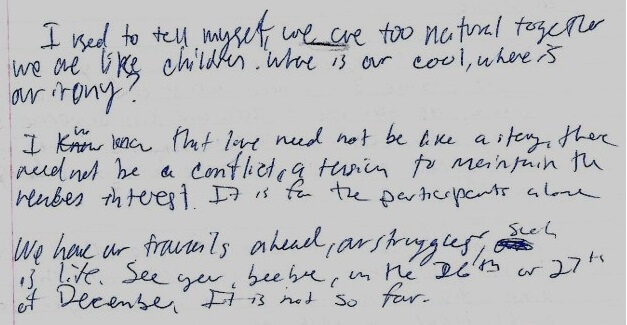 I used to tell myself, we are too natural together
we are like children. Where is our cool, where is
our irony?
I know that love need not be like a story, there
need not be a conflict, a tension to maintain the
interest. It is for the participants alone
We have our travails ahead, our struggles, such
is life. See you, beebee, on the 26th or 27th
of December. It is not so far.